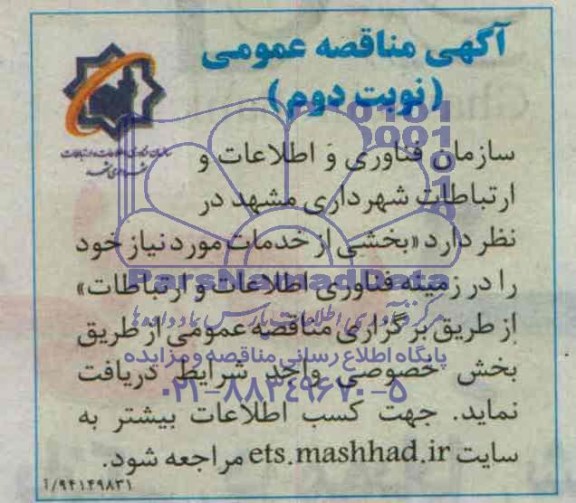 آگهی مناقصه عمومی
(نوبت دوم)
سازمان فناوری اطلاعات و ارتباطات
شهرداری مشهد
سازمان فناوری و اطلاعات و
ارتباطات شهرداری مشهد در
نظر دارد «بخشی از خدمات مورد نیاز خود
را در زمینه فناوری اطلاعات و ارتباطات»
از طریق برگزاری مناقصه عمومی از طریق
بخش خصوصی واجد شرایط دریافت
نماید. جهت کسب اطلاعات بیشتر به
سایت ets.mashhad.ir مراجعه شود.
ParsNamadData
مرکز فرآوری اطلاعات پارس نماد داده ها
پایگاه اطلاع رسانی مناقصه و مزایده
۰۲۱-۸۸۳۴۹۶۷۰-۵
۱/۹۴۱۴۹۸۳۱